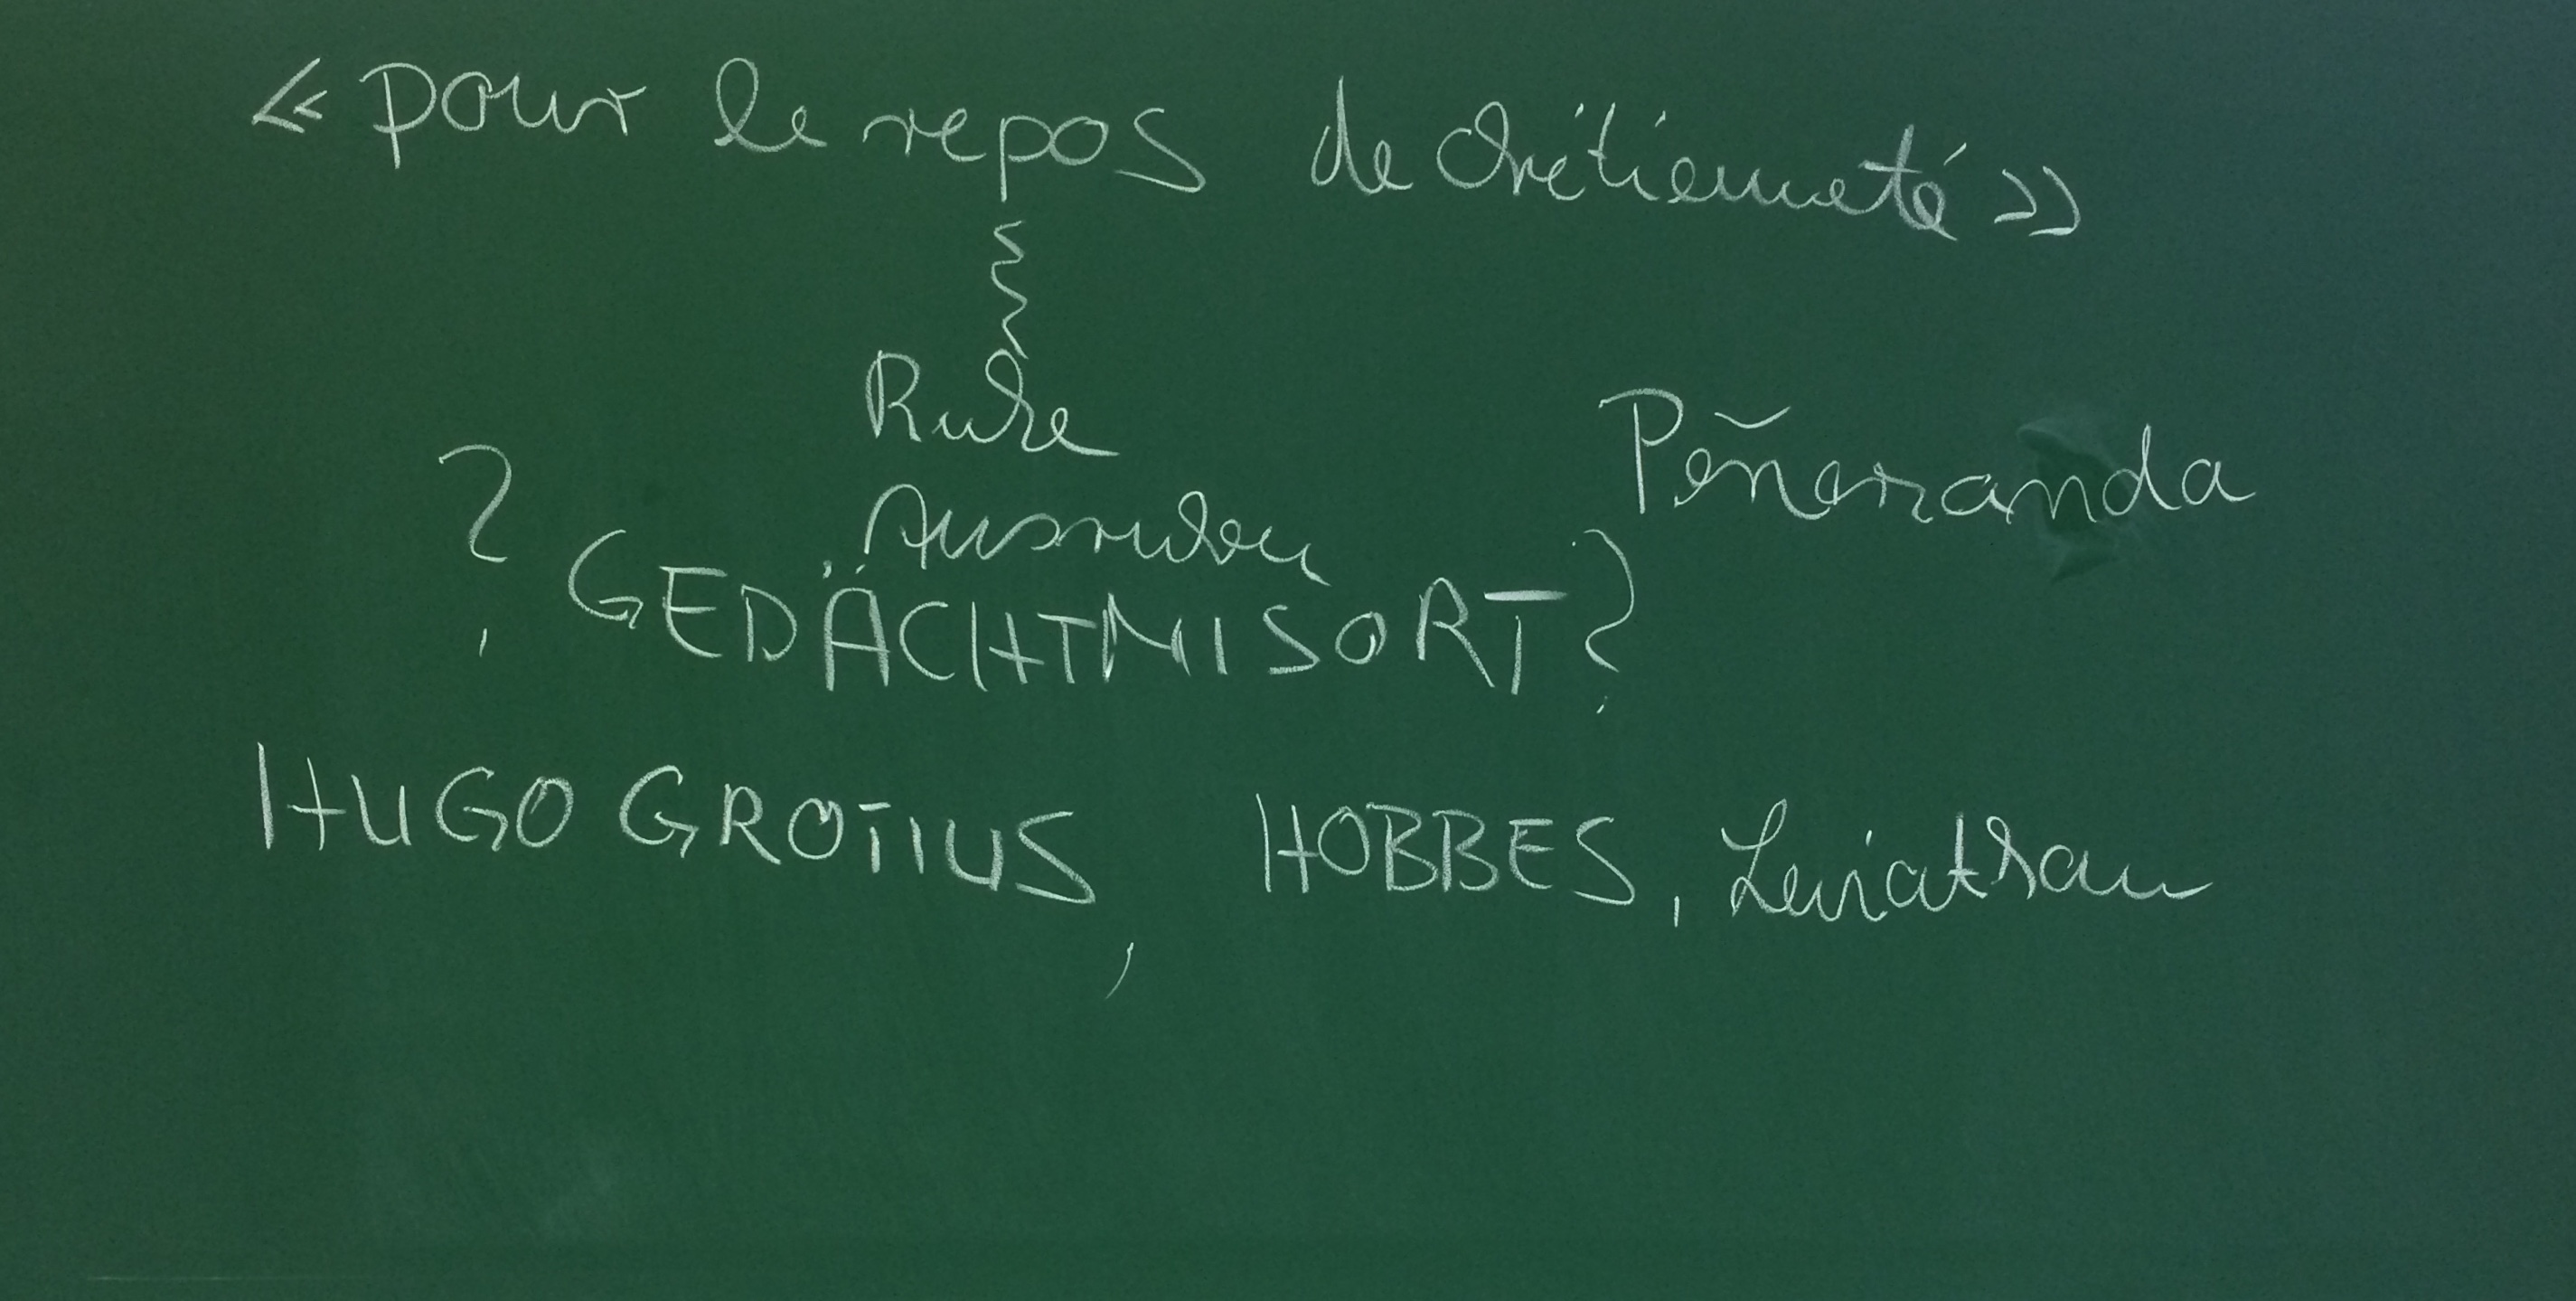 « pour le repos de chrétienneté »
Ruhe
Ausruhen
Peñaranda
? GEDÄCHTNISORT ?
HUGO GROTIUS, HOBBES, Leviathan